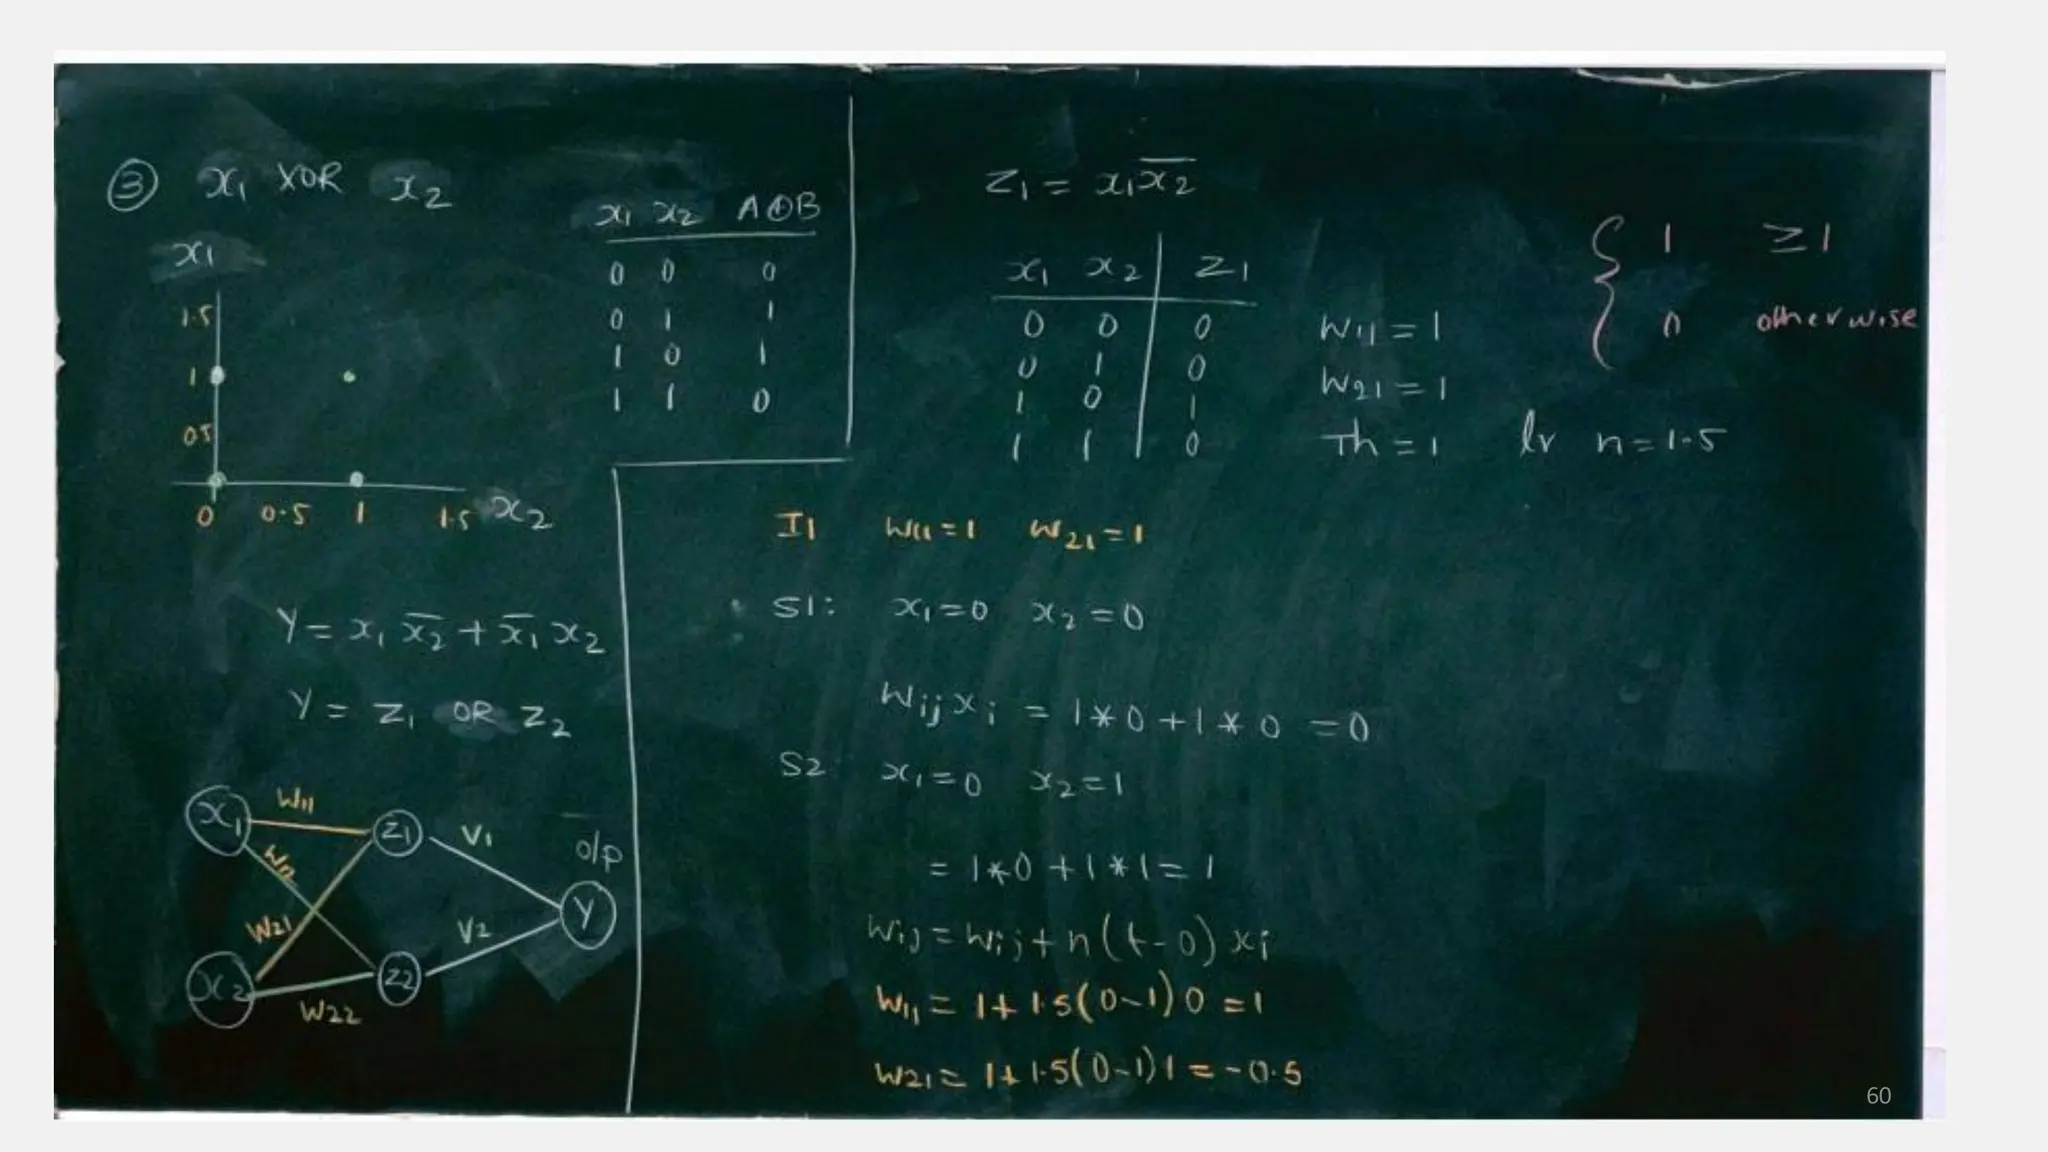 ③ x₁ XOR x₂
x₁
1.5
1
0.5
0 0.5 1 1.5 x₂
x₁ x₂ A⊕B
0 0 0
0 1 1
1 0 1
1 1 0
Y = x₁ x̅₂ + x̅₁ x₂
Y = Z₁ OR Z₂
x₁ W₁₁ Z₁ V₁
W₁₂ o/p
W₂₁ V₂ Y
x₂ W₂₂ Z₂
Z₁ = x₁x̅₂
x₁ x₂ Z₁
0 0 0
0 1 0
1 0 1
1 1 0
W₁₁ = 1
W₂₁ = 1
Th = 1 lr n = 1.5
{ 1 ≥1
0 otherwise
I1 W₁₁ = 1 W₂₁ = 1
S1: x₁ = 0 x₂ = 0
Wij xi = 1*0 + 1*0 = 0
S2 x₁ = 0 x₂ = 1
= 1*0 + 1*1 = 1
Wij = Wij + n(t-0) xi
W₁₁ = 1 + 1.5(0-1)0 = 1
W₂₁ = 1 + 1.5(0-1)1 = -0.5
60